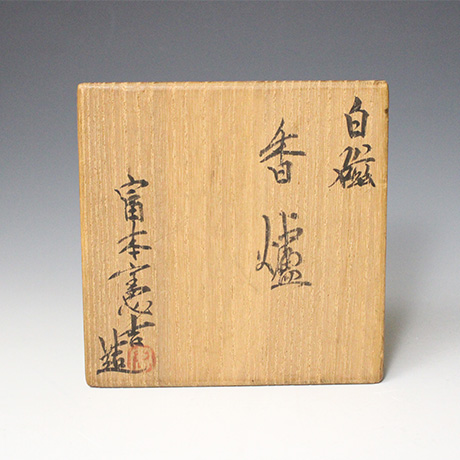 白磁
香爐
富本憲吉造